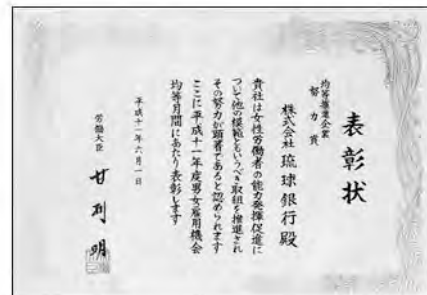 表彰状
均等推進企業
努力賞
株式会社 琉球銀行殿
貴社は女性労働者の能力発揮促進に
ついて他の模範ともいうべき取組を推進され
その努力が顕著であると認められます
ここに平成十一年度男女雇用機会
均等月間にあたり表彰します
平成十一年六月一日
労働大臣 甘利明